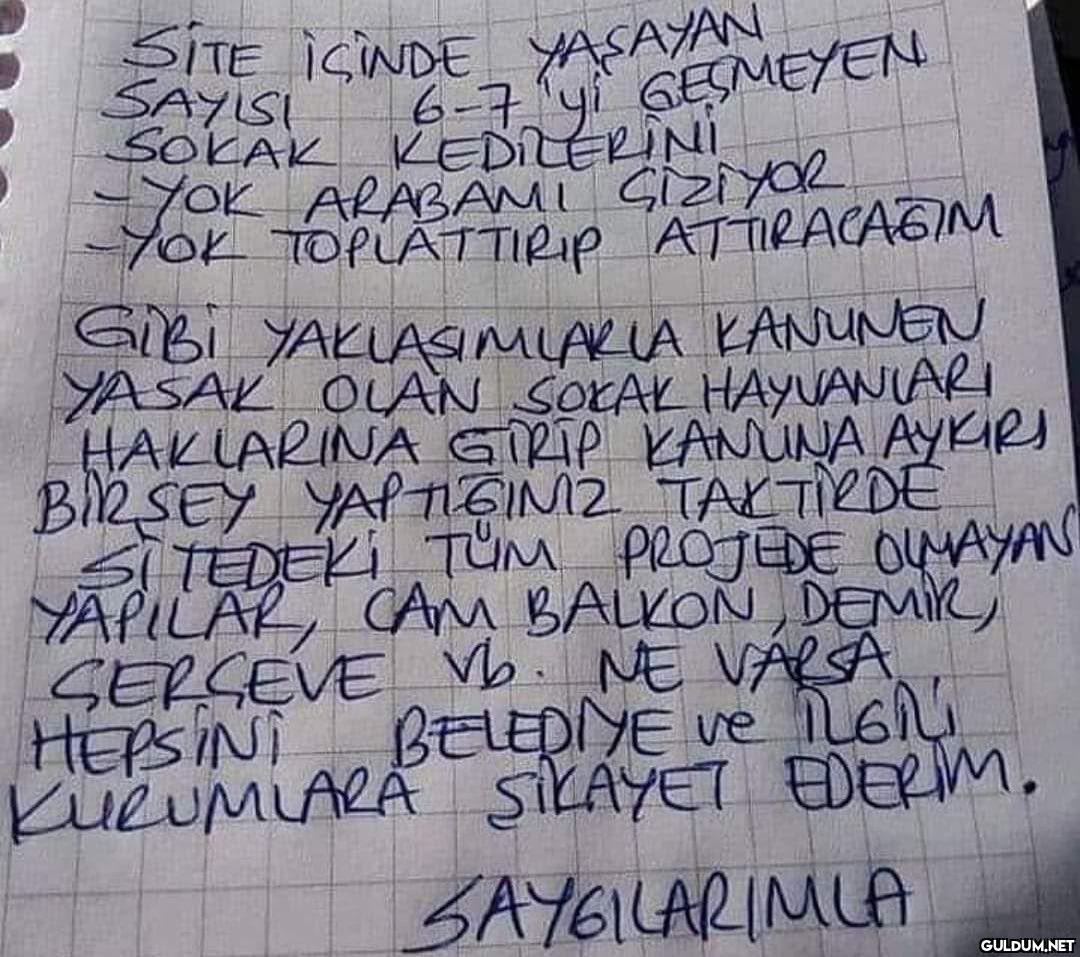 SİTE İÇİNDE YAŞAYAN
SAYISI 6-7'yi GEÇMEYEN
SOKAK KEDİLERİNİ
-YOK ARABAMI ÇİZİYOR
-YOK TOPLATTIRIP ATTIRACAĞIM
GİBİ YAKLAŞIMLARLA KANUNEN
YASAK OLAN SOKAK HAYVANLARI
HAKLARINA GİRİP KANUNA AYKIRI
BİRŞEY YAPTIĞINIZ TAKTİRDE
SİTEDEKİ TÜM PROJEDE OLMAYAN
YAPILAR, CAM BALKON, DEMİR,
ÇERÇEVE vb. NE VARSA
HEPSİNİ BELEDİYE ve İLGİLİ
KURUMLARA ŞİKAYET EDERİM.
SAYGILARIMLA
GULDUM.NET